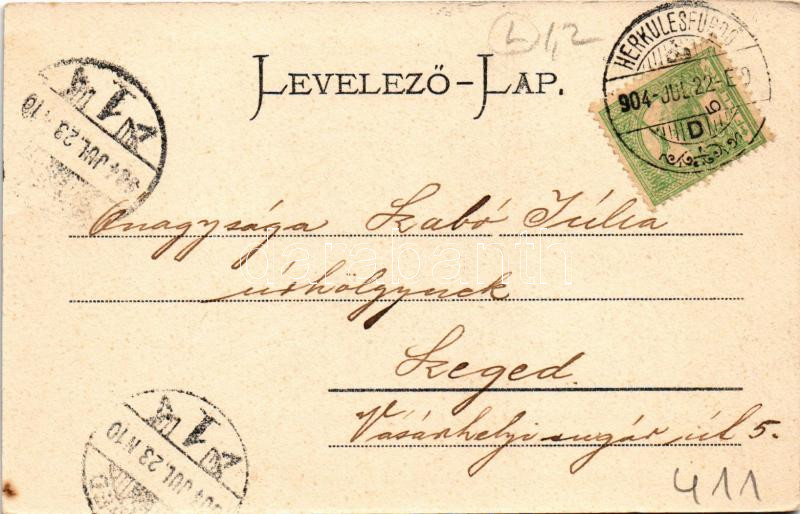 L 1,2
LEVELEZŐ-LAP.
HERKULESFÜRDŐ
904-JUL.22-
D
904 JUL.23.N10
Őnagysága Szabó Júlia
úrhölgynek
Szeged
Vásárhelyi sugár út 5.
904 JUL.23.N10
411
darabanth